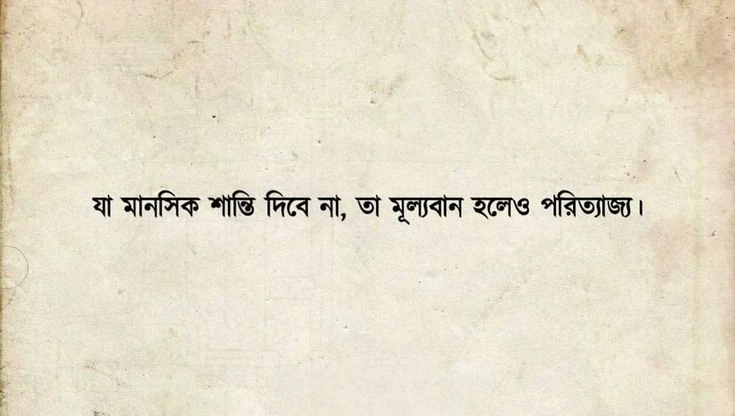 যা মানসিক শান্তি দিবে না, তা মূল্যবান হলেও পরিত্যাজ্য।